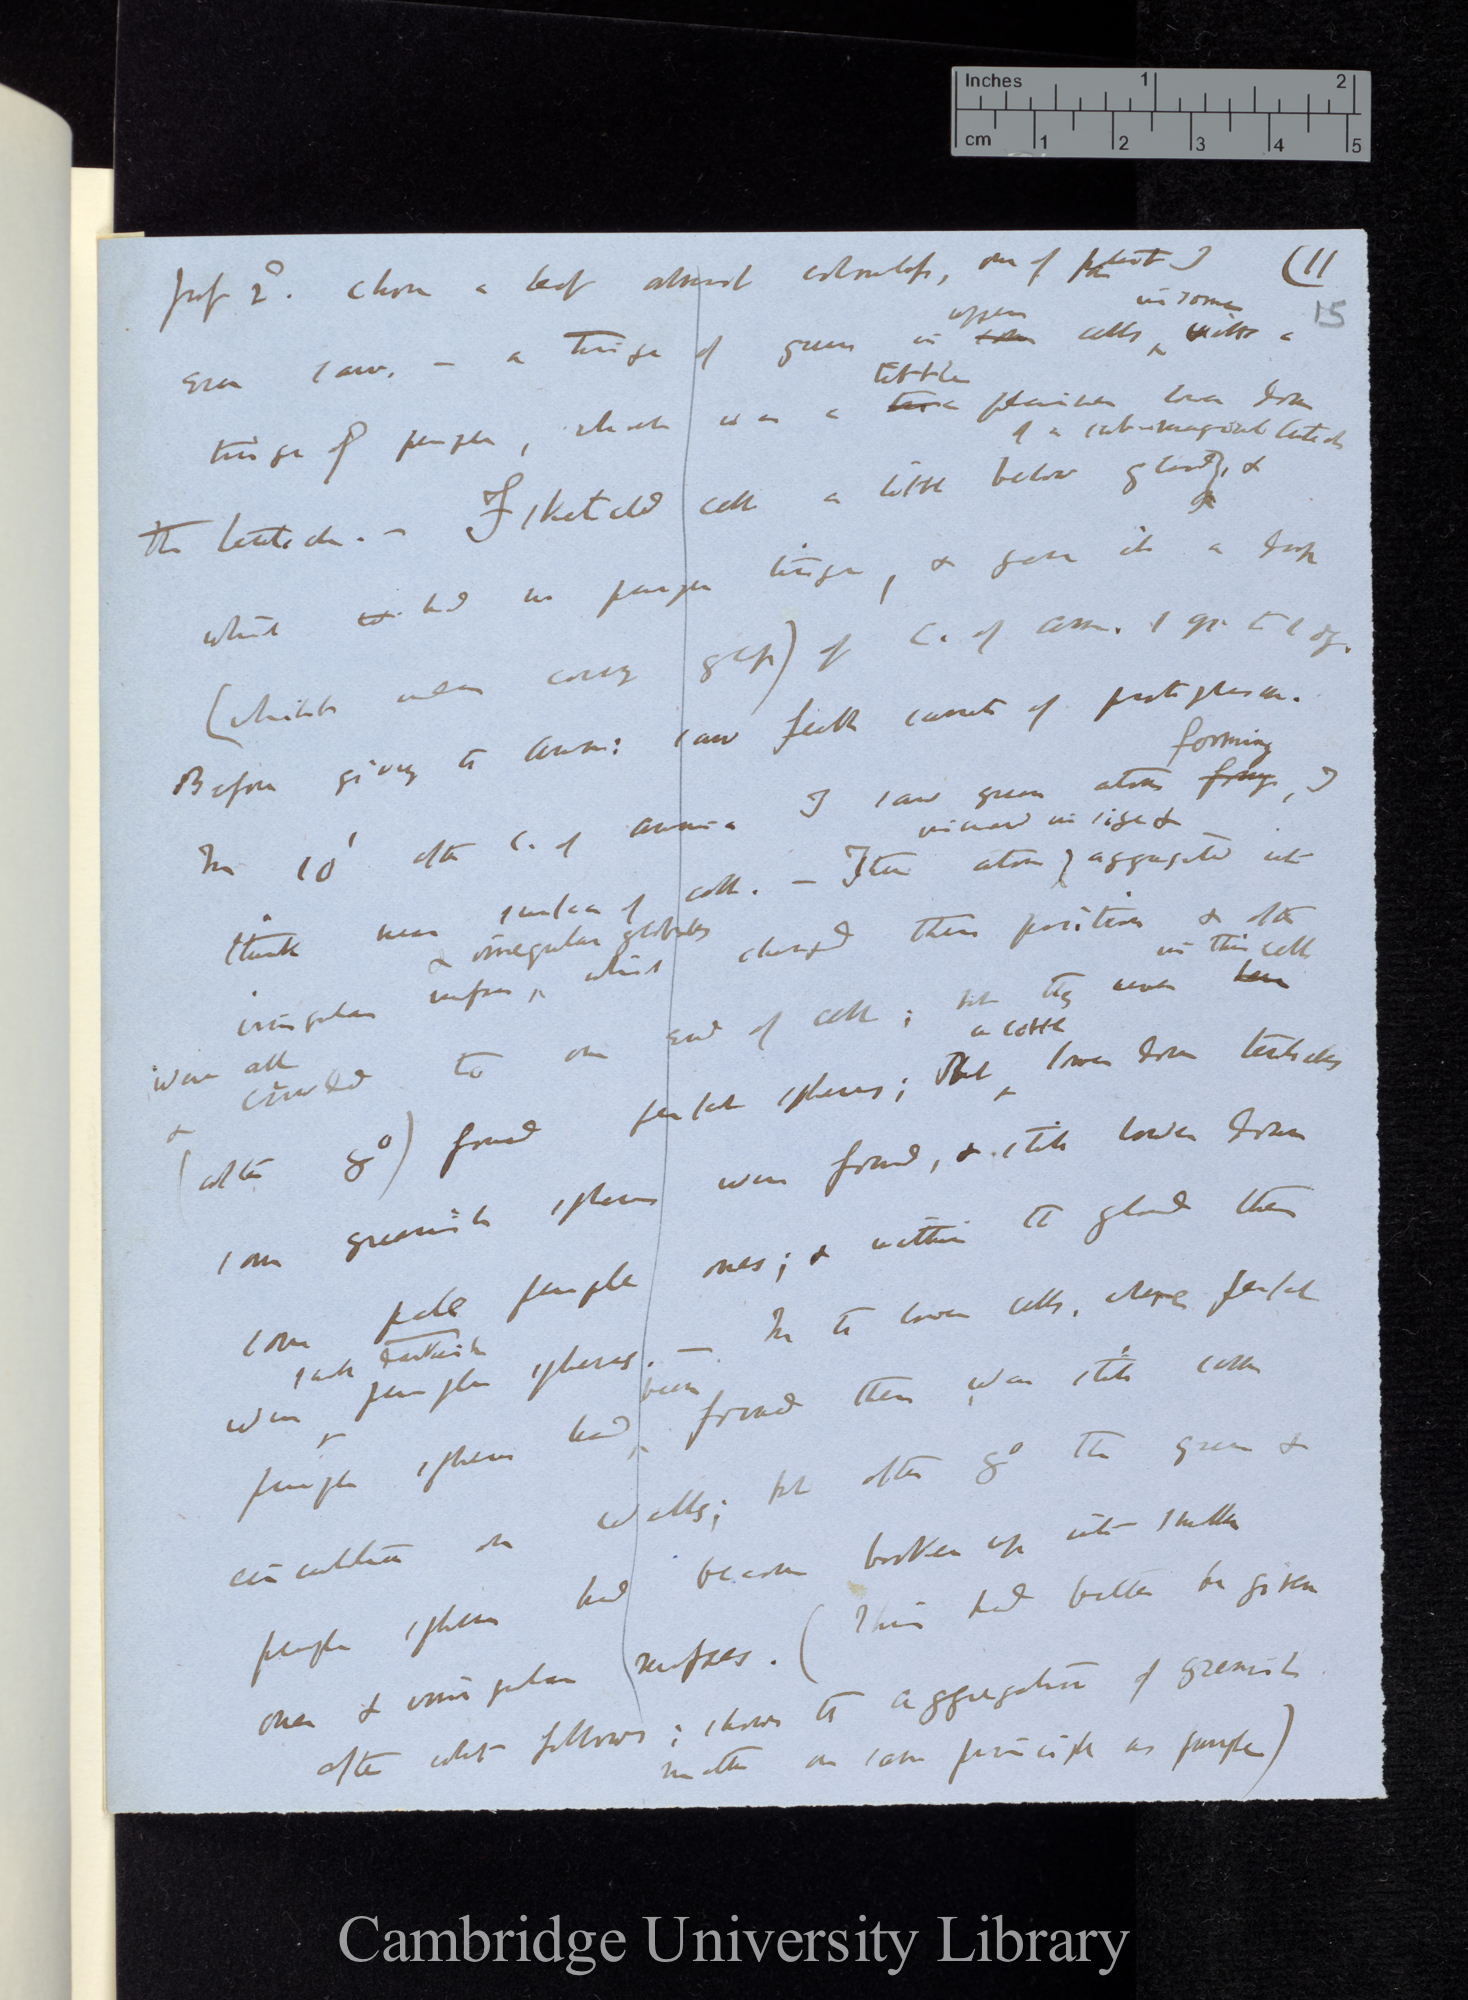 Inches 1 2
cm 1 2 3 4 5
(11
15
2°. chose a leaf almost colourless, one of palest I
upper in some
ever saw. — a tinge of green in cells, with a
little
tinge of purple, which was a plainer lower down
of a sub-marginal tentacle
the tentacle. — I sketched cell a little below gland, &
which had no purple tinge, & gave it a drop
(whilst under glass) of C. of Amm. 1 gr to 1 oz.
Before giving to Amm: saw feeble currents of protoplasm.
forming
In 10' after C. of Ammonia I saw green atoms, I
increased in size &
think near surface of cell. — These atoms aggregated into
& irregular globules
irregular masses, which changed their position & often
in this cell
were all crowded to one end of cell; but they never
a little
& (after 8°) formed perfect spheres; But lower down tentacles
some greenish spheres were found, & still lower down
some pale purple ones; & within the gland there
darkish
were purple spheres. — In the lower cells, where perfect
been
purple spheres had formed there was still some
circulation on walls; but after 8° the green &
purple spheres had become broken up into smaller
ones & irregular masses. (This had better be given
after what follows; shows the aggregation of greenish
matter on same principle as purple)
Cambridge University Library